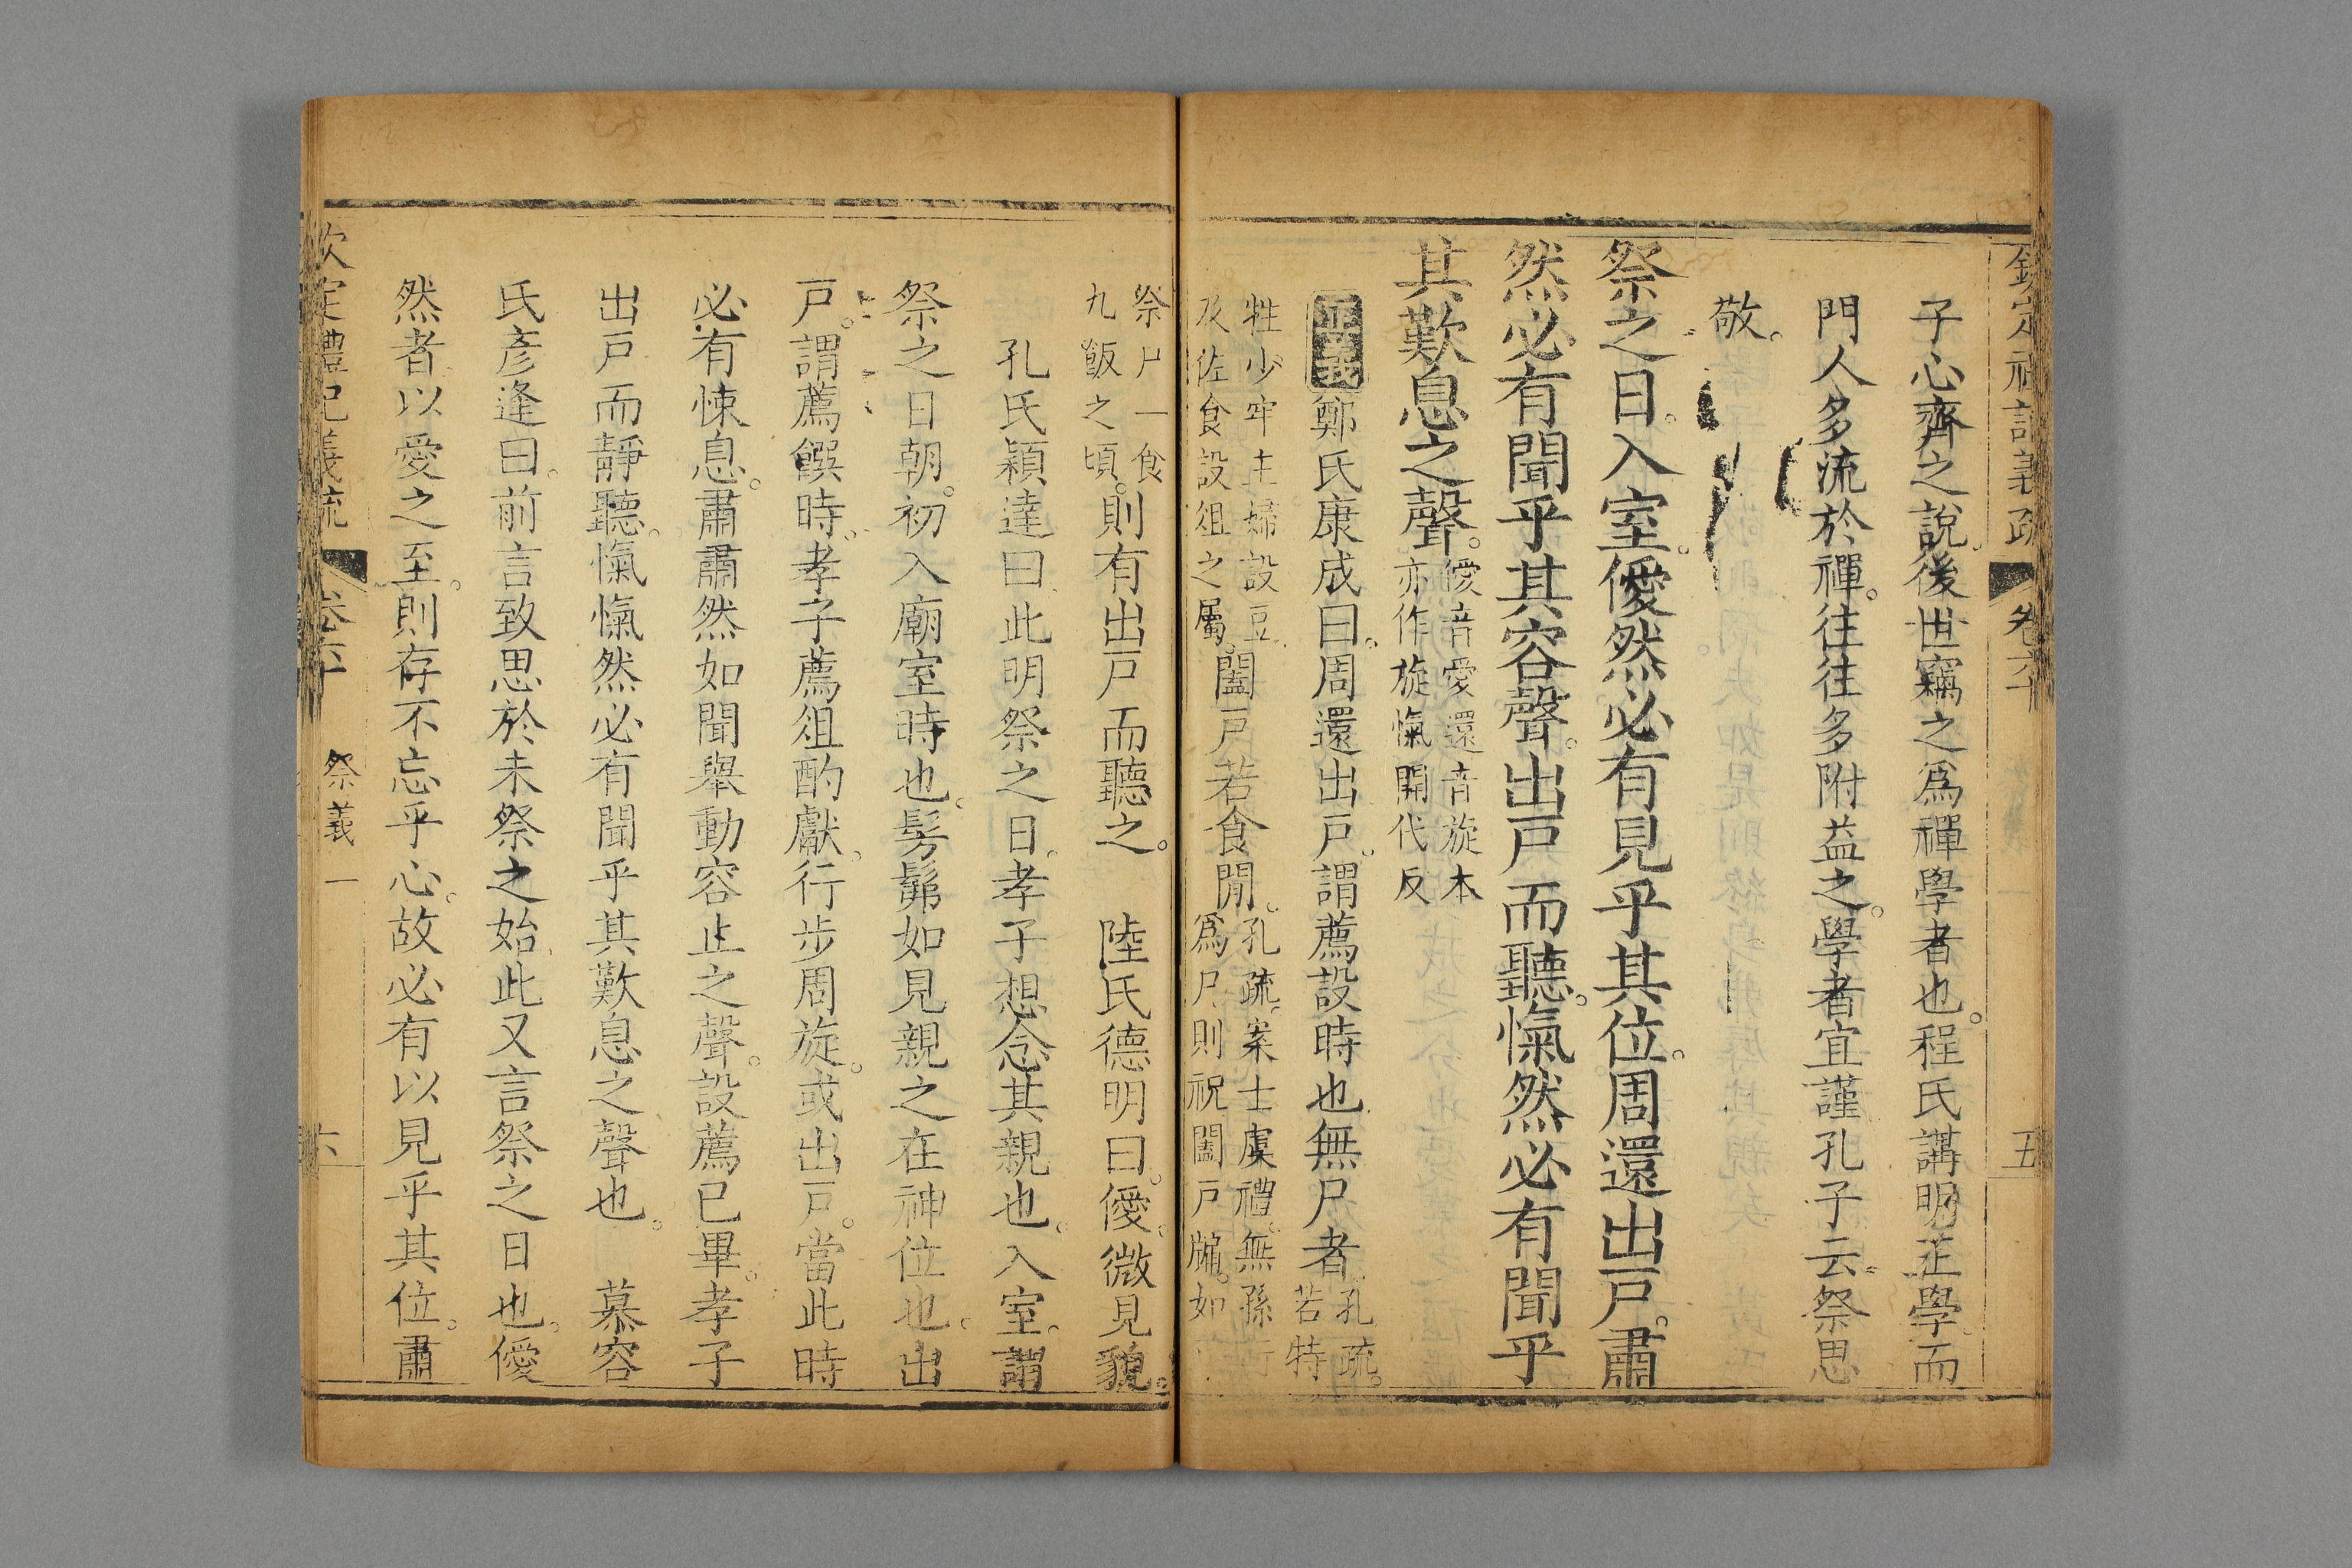 欽定禮記義疏 卷六十 五
子心齊之說後世竊之爲禪學者也。程氏講明正學而
門人多流於禪。往往多附益之。學者宜謹孔子云祭思
敬。
祭之日。入室。僾然必有見乎其位。周還出戸。肅
然必有聞乎其容聲。出戸而聽。愾然必有聞乎
其歎息之聲。僾音愛還音旋本
亦作旋愾開代反
正義鄭氏康成曰。周還出戸。謂薦設時也無尸者孔疏。
若特
牲少牢主婦設豆
及佐食設俎之屬。闔戸若食閒。孔疏。案士虞禮。無孫行
爲尸則祝闔戸牖。如
祭尸一食
九飯之頃。則有出戸而聽之。 陸氏德明曰。僾。微見貌。
孔氏穎達曰此明祭之日。孝子想念其親也。入室。謂
祭之日朝。初入廟室時也。髣髴如見親之在神位也。出
戸。謂薦饌時。孝子薦俎酌獻。行步周旋。或出戸。當此時
必有悚息。肅肅然如聞舉動容止之聲。設薦已畢。孝子
出戸而靜聽。愾愾然必有聞乎其歎息之聲也。 慕容
氏彥逢曰。前言致思於未祭之始此又言祭之日也。僾
然者以愛之至。則存不忘乎心。故必有以見乎其位。肅
欽定禮記義疏 卷六十 祭義一 六